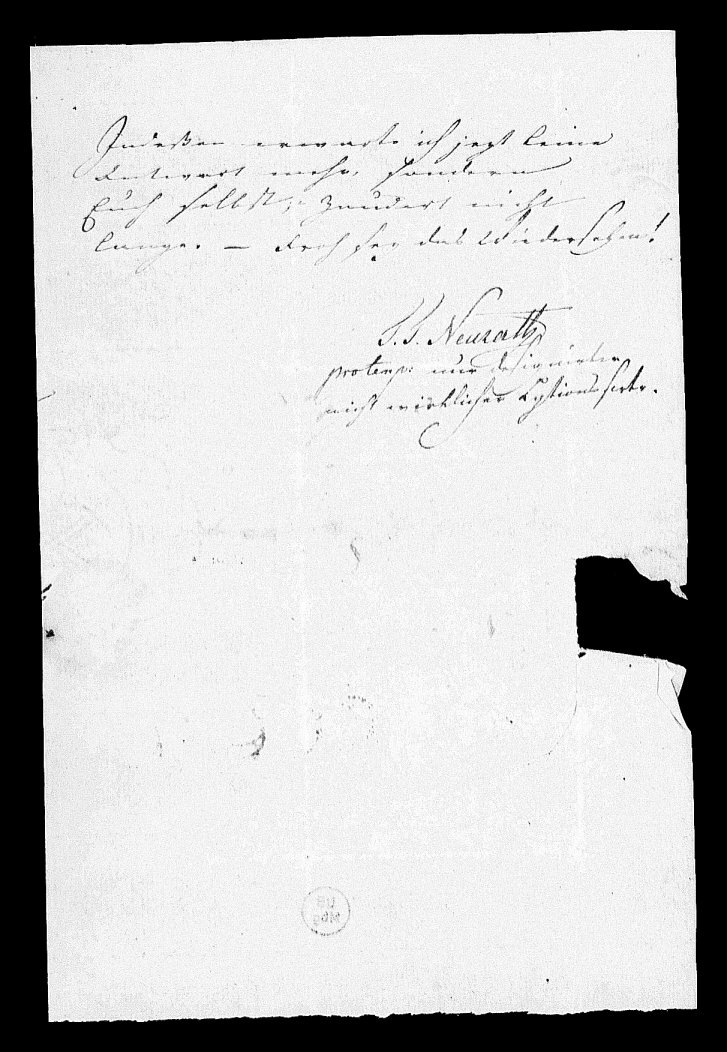 Indeßen erwarte ich jezt keine
Antwort mehr, sondern
Euch selbst; zaudert nicht
lange. — Froh sey das Wiedersehen!
J. J. Neurath
pro temp: nur designirter
nicht wirklicher
UB
Mbg